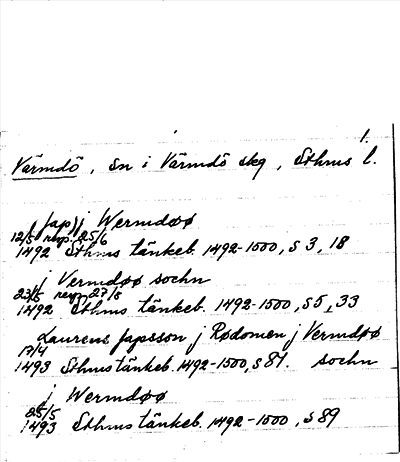 1.
Värmdö, sn i Värmdö skg, Sthms l.
(Jap) j Wermdøø
12/5 resp. 25/6
1492 Sthms tänkeb. 1492-1500, s 3, 18
j Vermdøø sochn
23/5 resp. 27/8
1492 Sthms tänkeb. 1492-1500, s 5, 33
Laurens Japsson j Rødomen j Vermdøø
17/4 sochn
1493 Sthms tänkeb. 1492-1500, s 81.
j Wermdøø
25/5
1493 Sthms tänkeb. 1492-1500, s 89